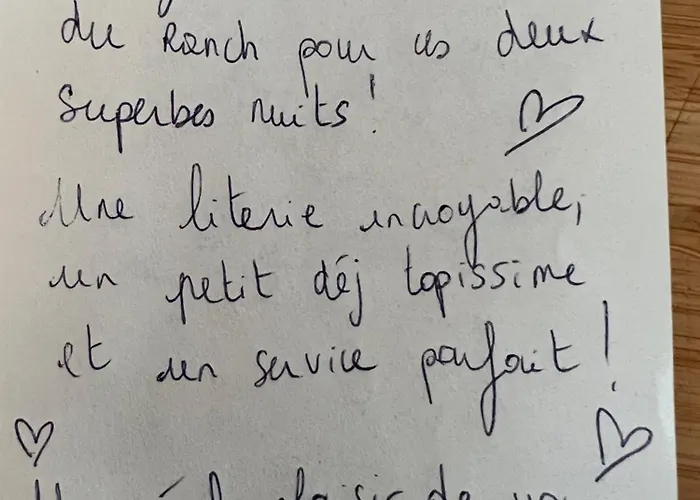 du Ranch pour ces deux
superbes nuits !
Une literie incroyable,
un petit déj topissime
et un service parfait !
plaisir de